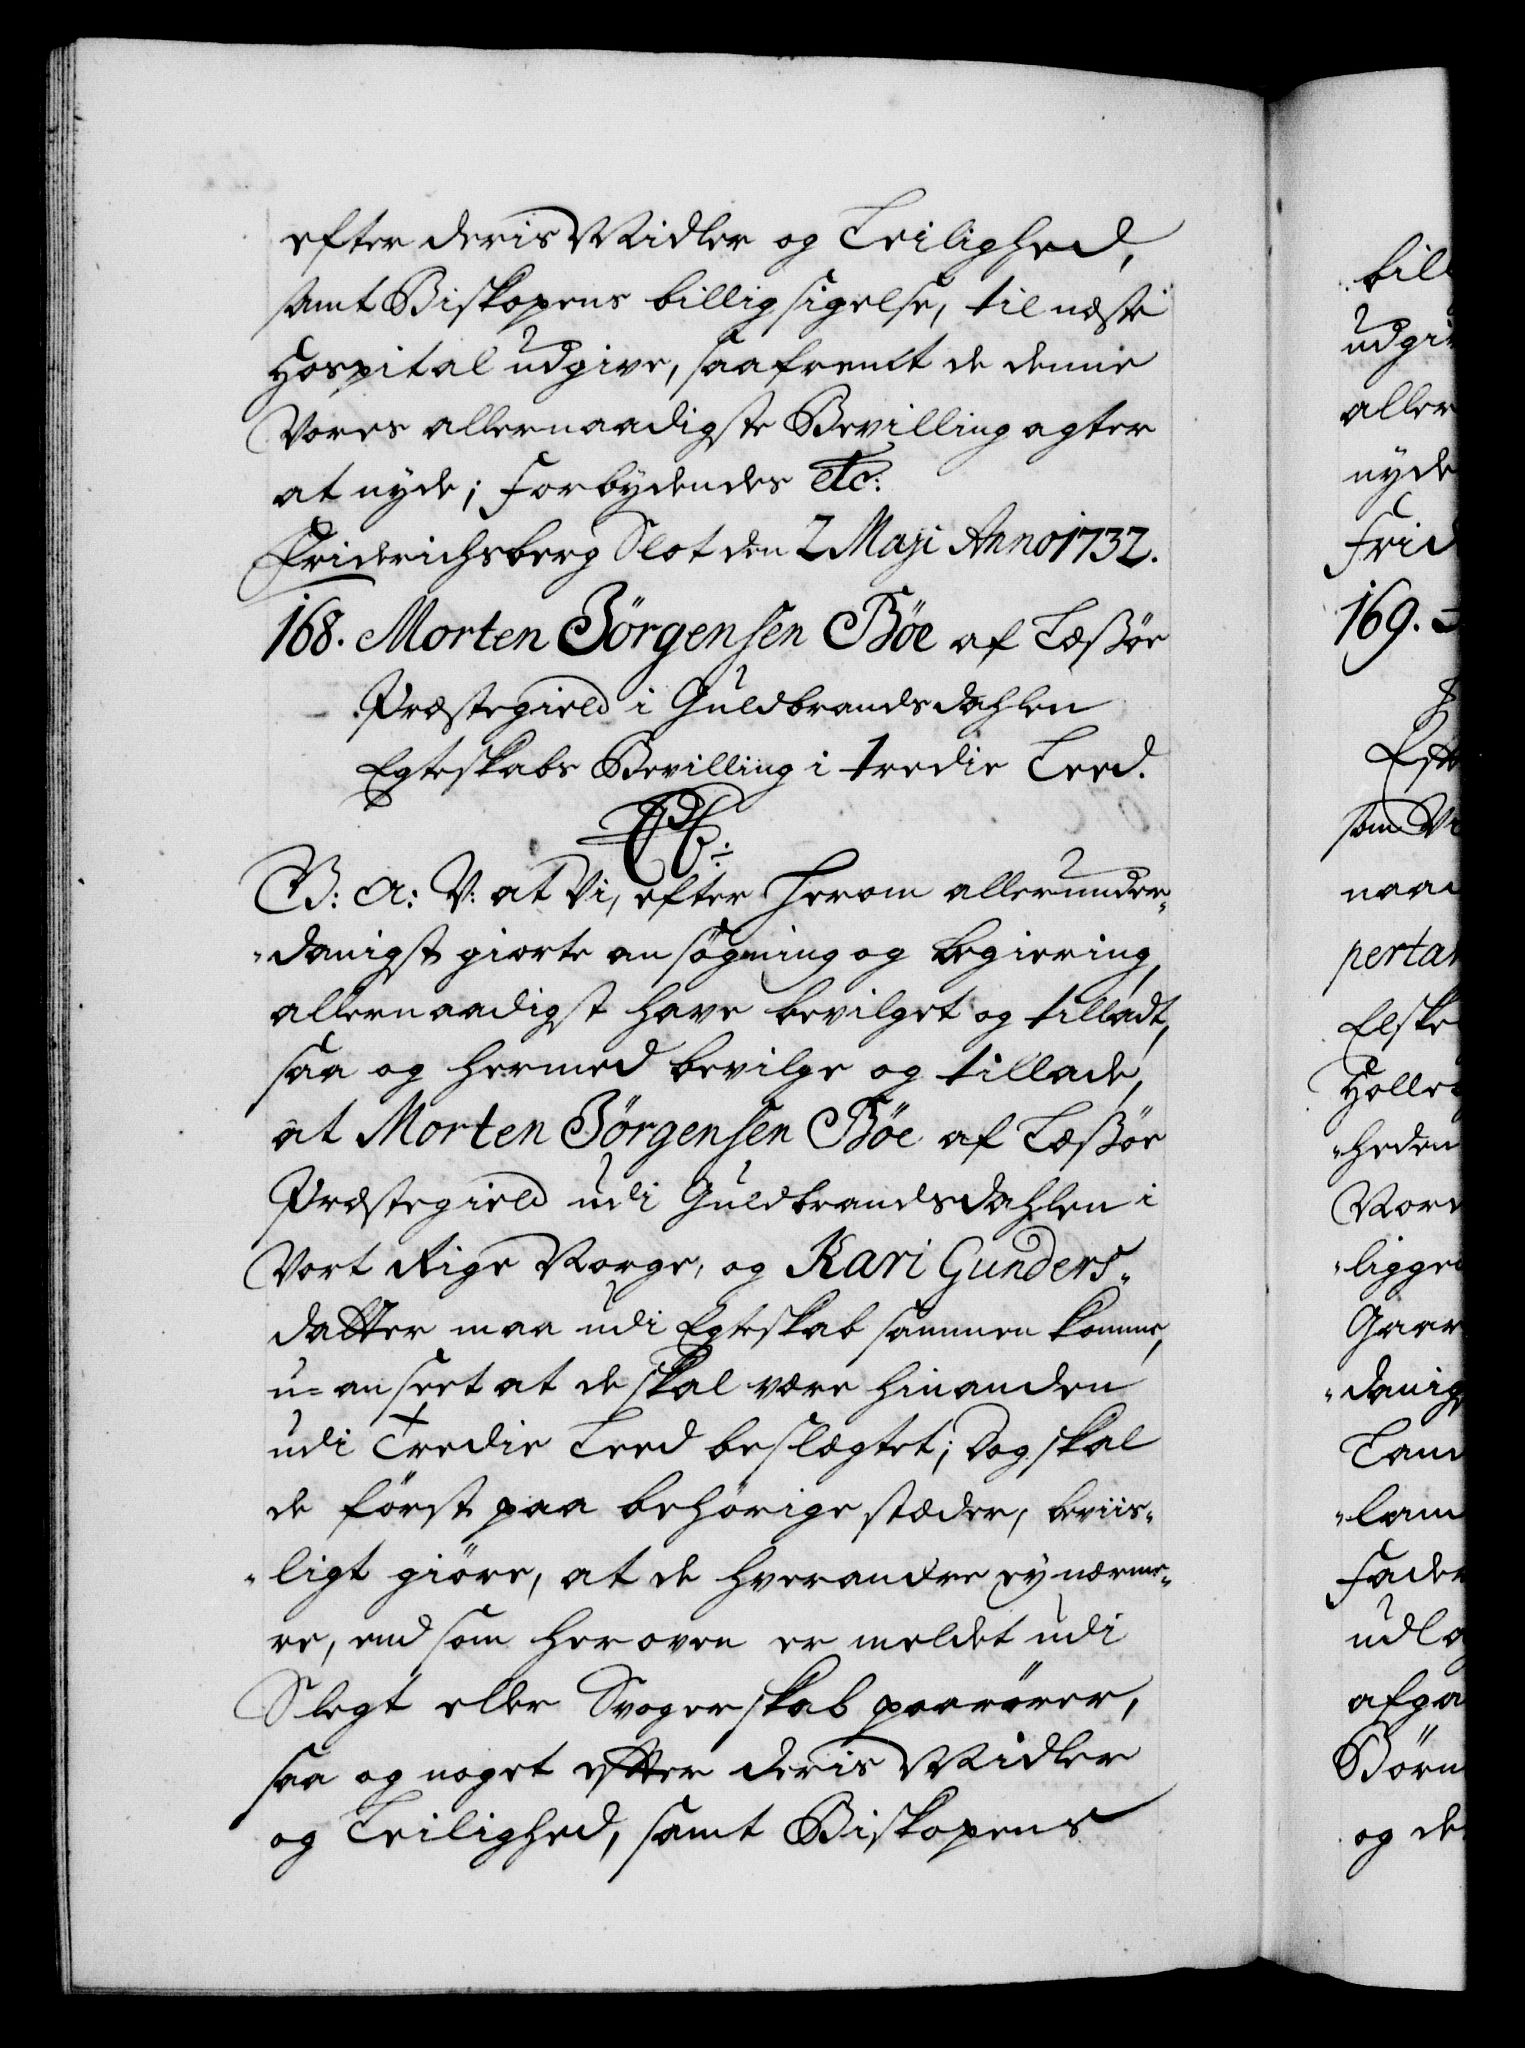 efter deris Midler og Leilighed,
samt Biskopens billig sigelse, til næste
Hospital udgive, saafremt de denne
Vores allernaadigste Bevilling agter
at nyde; Forbydendes etc:
Friderichsberg Slot den 2 Maji Anno 1732.
168. Morten Jörgensen Böe af Læssøe
Præstegield i Guldbrandsdahlen
Egteskabs Bevilling i tredie Leed.
G: A: V: at Vi, efter herom allerunder-
danigst giorte ansögning og begiering,
allernaadigst have bevilget og tilladt,
saa og hermed bevilge og tillade,
at Morten Jörgensen Böe af Læssøe
Præstegield udi Guldbrandsdahlen i
Vort Rige Norge, og Kari Gunders-
datter maa udi Egteskab sammen komme,
u-anseet at de skal være hinanden
udi Tredie Leed beslægtet; Dog skal
de först paa behörige stæder, beviis-
ligt giöre, at de hverandre ey nærme-
re, end som her oven er meldet udi
Slegt eller Svogerskab paarörer,
saa og noget efter deris Midler
og Leilighed, samt Biskopens
bil
udgi
aller
nyde
Frid
169.
Eft
som Vi
naa
perta
Elske
Holle
heden
Nor
ligge
Gaar
danig
Lan
lam
Fader
udla
afga
Börn
og de